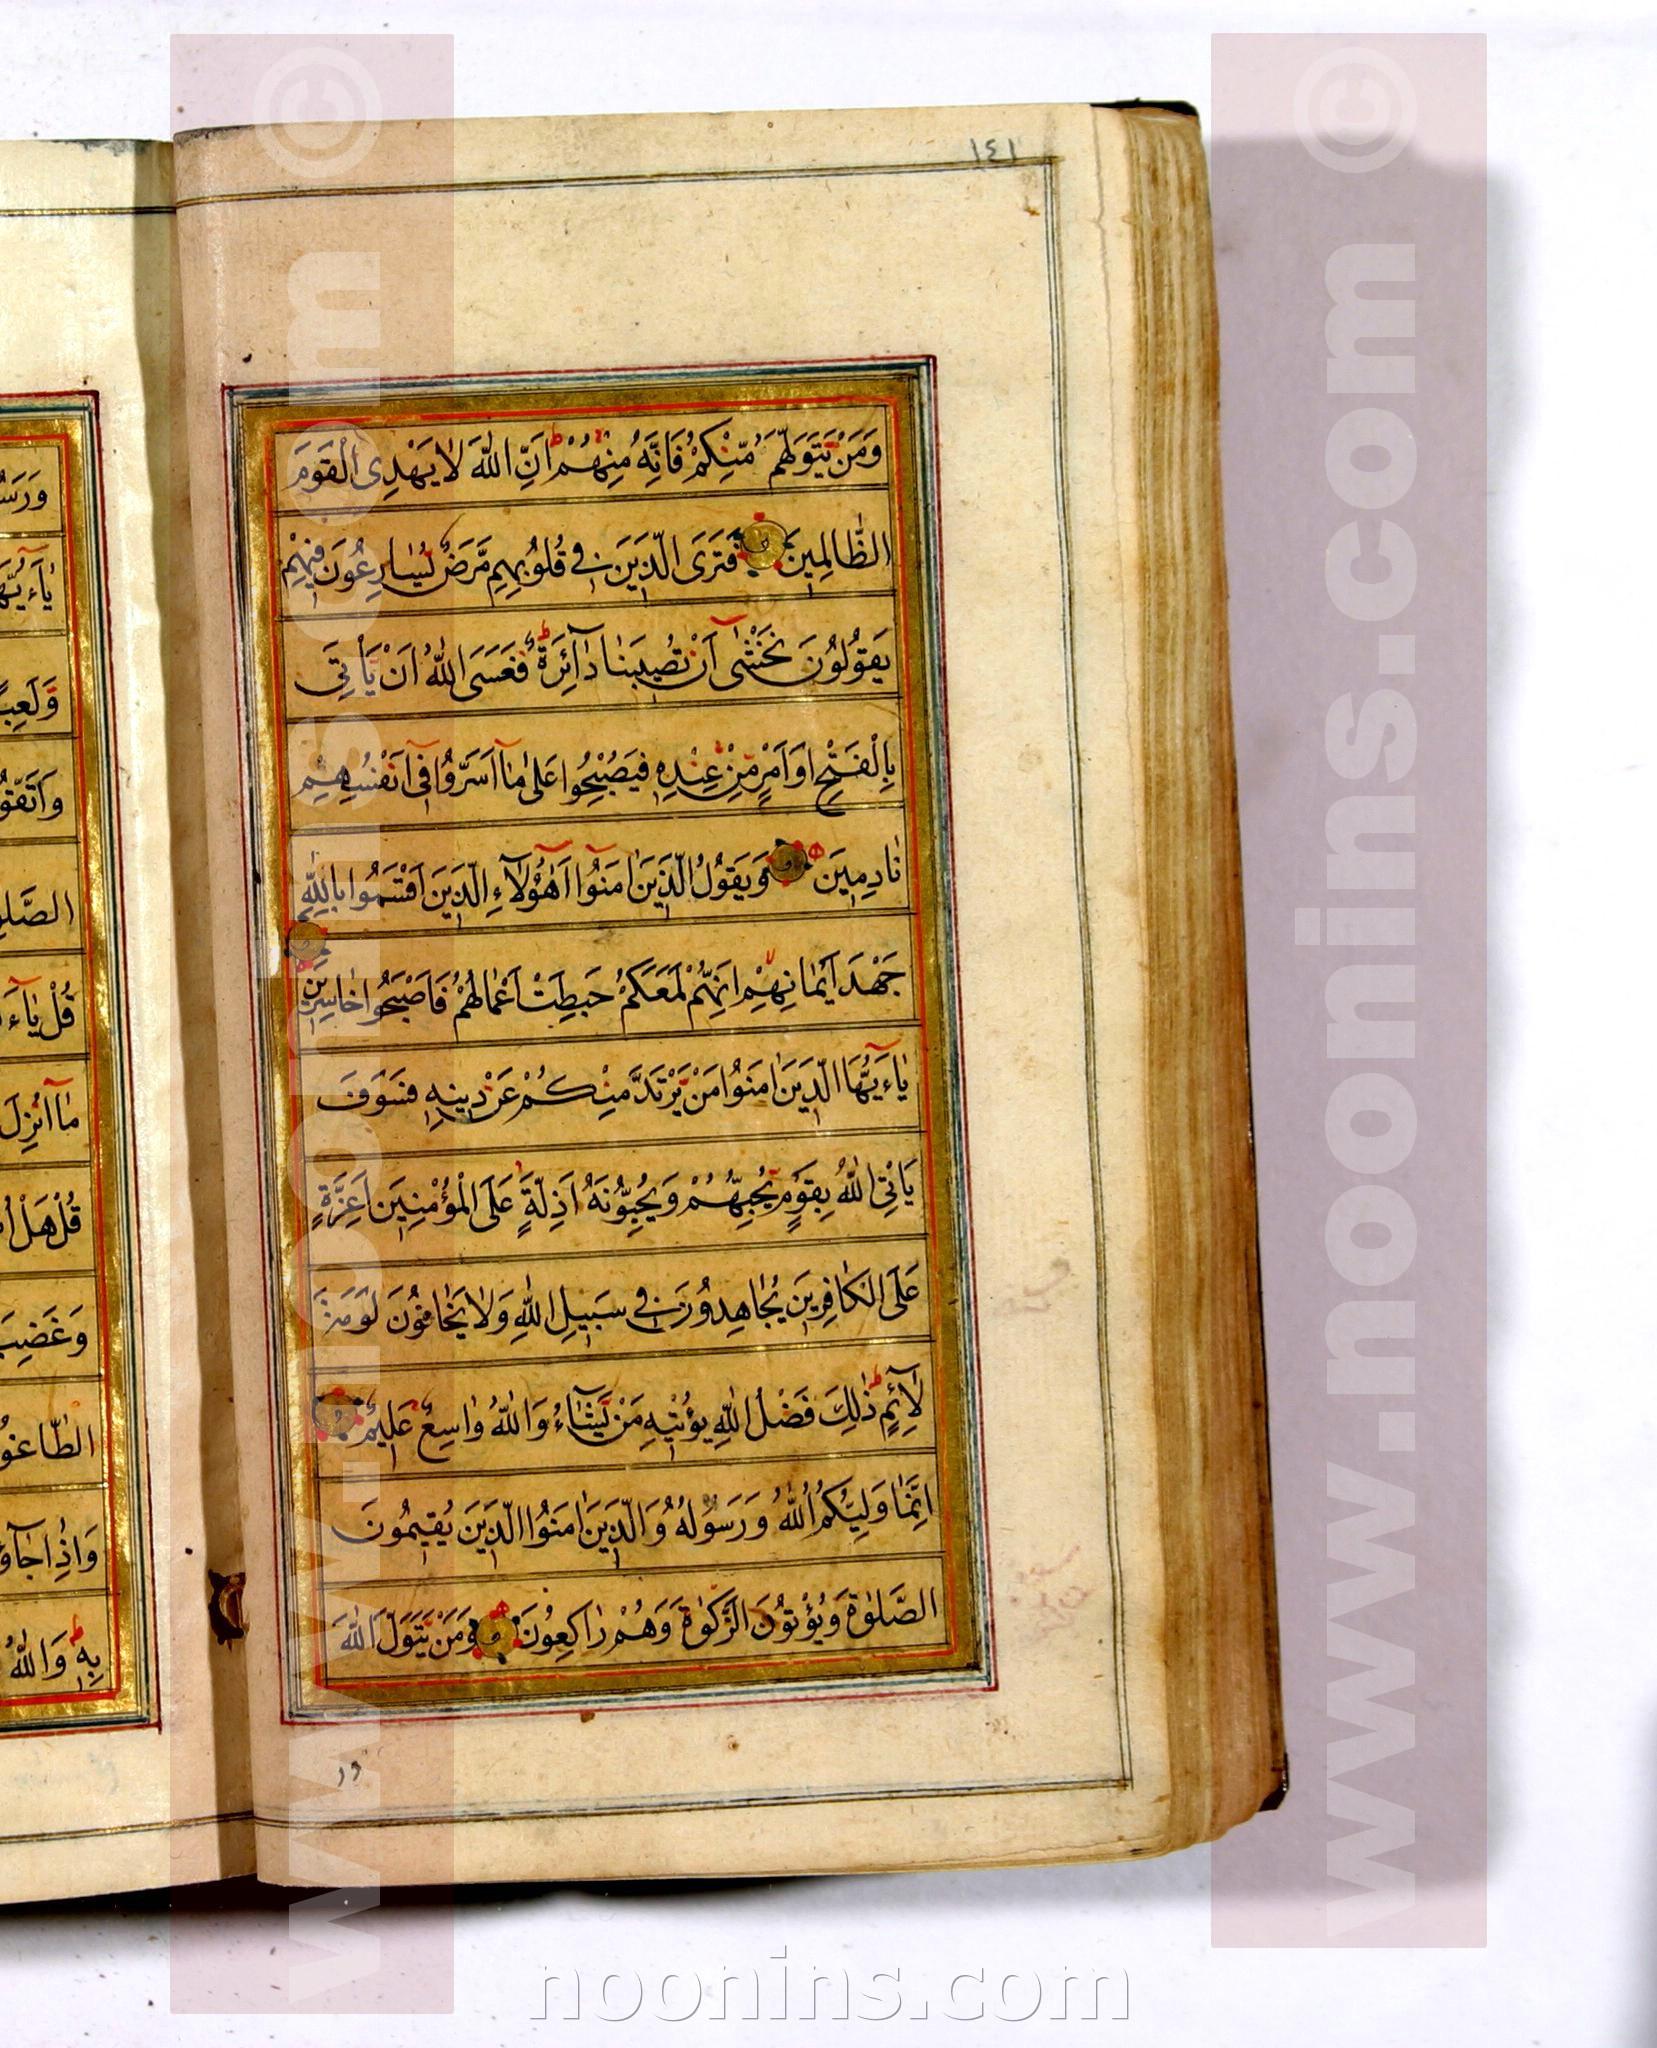 ١٤١
وَمَنْ يَتَوَلَّهُمْ مِنْكُمْ فَاِنَّهُ مِنْهُمْ اِنَّ اللّٰهَ لَا يَهْدِى الْقَوْمَ
الظَّالِمِينَ فَتَرَى الَّذِينَ فِى قُلُوبِهِمْ مَرَضٌ يُسَارِعُونَ فِيهِمْ
يَقُولُونَ نَخْشٰى اَنْ تُصِيبَنَا دَآئِرَةٌ فَعَسَى اللّٰهُ اَنْ يَأْتِىَ
بِالْفَتْحِ اَوْ اَمْرٍ مِنْ عِنْدِهِ فَيُصْبِحُوا عَلٰى مَآ اَسَرُّوا فِىٓ اَنْفُسِهِمْ
نَادِمِينَ وَيَقُولُ الَّذِينَ اٰمَنُوٓا اَهٰٓؤُلَآءِ الَّذِينَ اَقْسَمُوا بِاللّٰهِ
جَهْدَ اَيْمَانِهِمْ اِنَّهُمْ لَمَعَكُمْ حَبِطَتْ اَعْمَالُهُمْ فَاَصْبَحُوا خَاسِرِينَ
يَآءَيُّهَا الَّذِينَ اٰمَنُوا مَنْ يَرْتَدَّ مِنْكُمْ عَنْ دِينِهِ فَسَوْفَ
يَأْتِى اللّٰهُ بِقَوْمٍ يُحِبُّهُمْ وَيُحِبُّونَهُ اَذِلَّةٍ عَلَى الْمُؤْمِنِينَ اَعِزَّةٍ
عَلَى الْكَافِرِينَ يُجَاهِدُونَ فِى سَبِيلِ اللّٰهِ وَلَا يَخَافُونَ لَوْمَةَ
لَآئِمٍ ذٰلِكَ فَضْلُ اللّٰهِ يُؤْتِيهِ مَنْ يَشَآءُ وَاللّٰهُ وَاسِعٌ عَلِيمٌ
اِنَّمَا وَلِيُّكُمُ اللّٰهُ وَرَسُولُهُ وَالَّذِينَ اٰمَنُوا الَّذِينَ يُقِيمُونَ
الصَّلٰوةَ وَيُؤْتُونَ الزَّكٰوةَ وَهُمْ رَاكِعُونَ وَمَنْ يَتَوَلَّ اللّٰهَ
يَآءَيُّهَا
الصَّلٰو
قُلْ يَآءَ
مَآ اُنْزِلَ
قُلْ هَلْ
وَغَضِبَ
وَاِذَا جَآؤُ
بِهِ وَاللّٰهُ
www.noonins.com ©
www.noonins.com ©
noonins.com